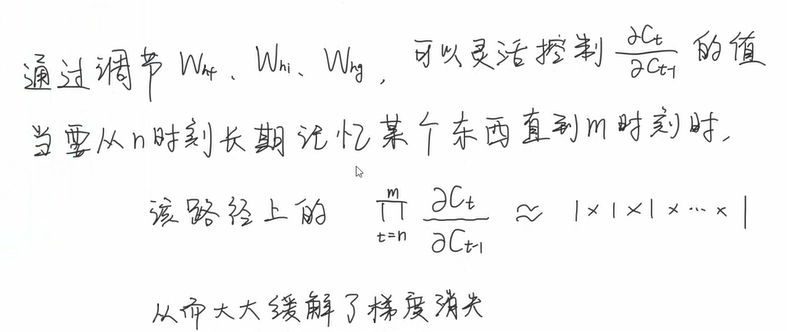 通过调节 W_hf、W_hi、W_hg，可以灵活控制 ∂C_t/∂C_t-1 的值
当要从n时刻长期记忆某个东西直到m时刻时，
该路径上的 ∏_{t=n}^{m} ∂C_t/∂C_t-1 ≈ 1×1×1×…×1
从而大大缓解了梯度消失